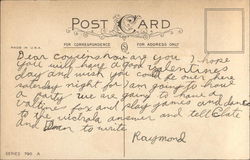 POST CARD
MADE IN U.S.A.
FOR CORRESPONDENCE
FOR ADDRESS ONLY
Dear Cousin how are you I hope
you will have a good valentines
day and wish you could be over here
saturday night for I am going to have
a party we are going to have a
valtine fox and play games and dance
to the victrola answer and tell
and to write
Raymond
SERIES 790 A